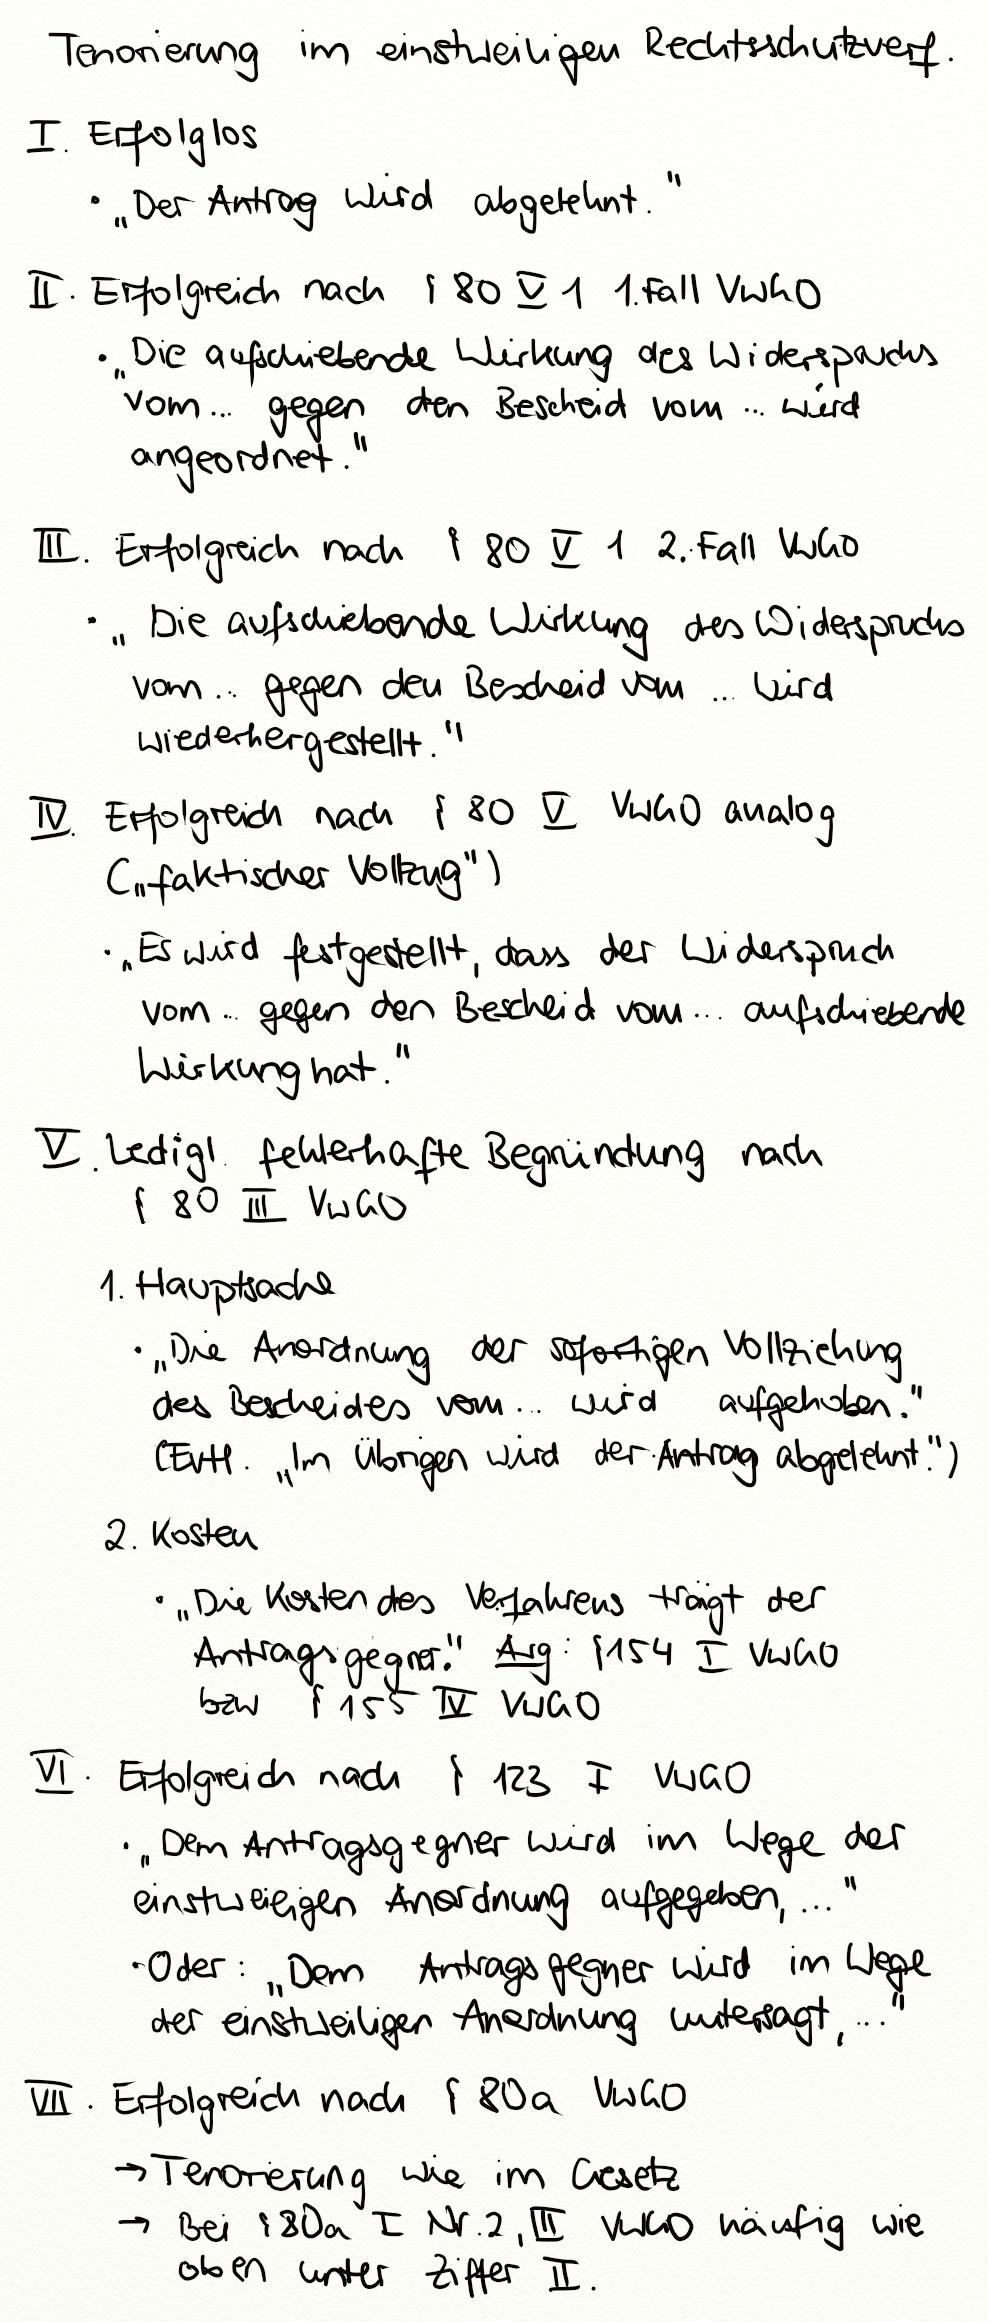 Tenorierung im einstweiligen Rechtsschutzverf.
I. Erfolglos
• „Der Antrag wird abgelehnt."
II. Erfolgreich nach § 80 V 1 1. Fall VwGO
• „Die aufschiebende Wirkung des Widerspruchs
vom... gegen den Bescheid vom ... wird
angeordnet."
III. Erfolgreich nach § 80 V 1 2. Fall VwGO
• „Die aufschiebende Wirkung des Widerspruchs
vom... gegen den Bescheid vom ... wird
wiederhergestellt."
IV. Erfolgreich nach § 80 V VwGO analog
(„faktischer Vollzug")
• „Es wird festgestellt, dass der Widerspruch
vom... gegen den Bescheid vom... aufschiebende
Wirkung hat."
V. Ledigl. fehlerhafte Begründung nach
§ 80 III VwGO
1. Hauptsache
• „Die Anordnung der sofortigen Vollziehung
des Bescheides vom... wird aufgehoben."
(Evtl. „Im Übrigen wird der Antrag abgelehnt.")
2. Kosten
• „Die Kosten des Verfahrens trägt der
Antragsgegner." Arg: § 154 I VwGO
bzw § 155 IV VwGO
VI. Erfolgreich nach § 123 I VwGO
• „Dem Antragsgegner wird im Wege der
einstweiligen Anordnung aufgegeben, ..."
• Oder: „Dem Antragsgegner wird im Wege
der einstweiligen Anordnung untersagt, ..."
VII. Erfolgreich nach § 80a VwGO
→ Tenorierung wie im Gesetz
→ Bei § 80a I Nr. 2, III VwGO häufig wie
oben unter Ziffer II.